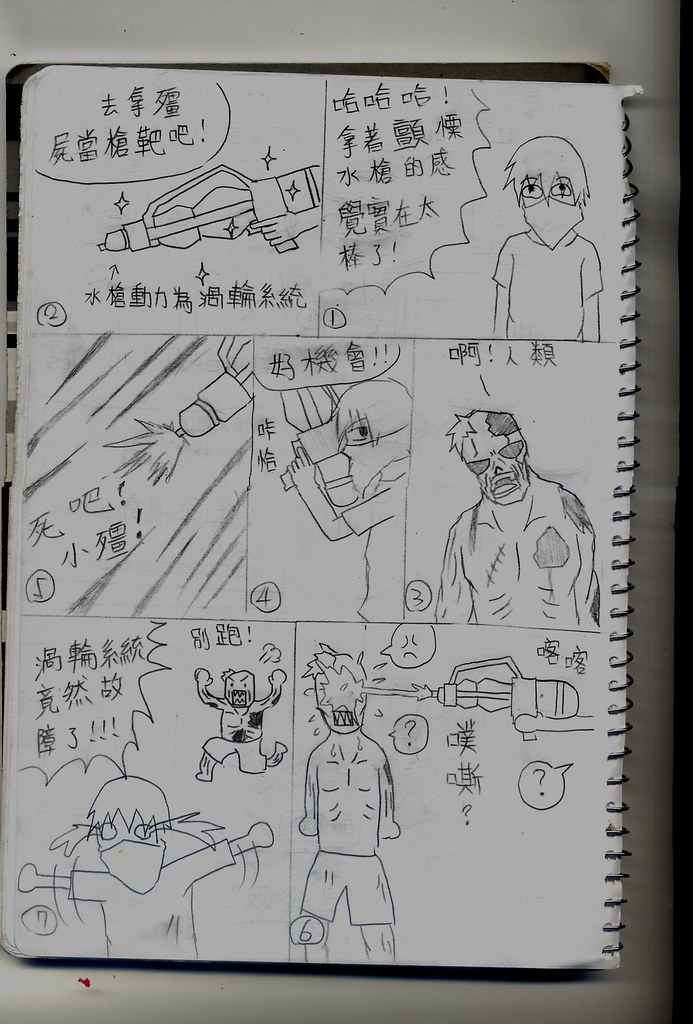 哈哈哈！
拿著顫慄
水槍的感
覺實在太
棒了！
①
去拿殭
屍當槍靶吧！
水槍動力為渦輪系統
②
啊！人類
③
好機會！！
咔
恰
④
死吧！
小殭！
⑤
喀喀
噗
嘶
？
？
？
⑥
別跑！
渦輪系統
竟然故
障了！！！
⑦